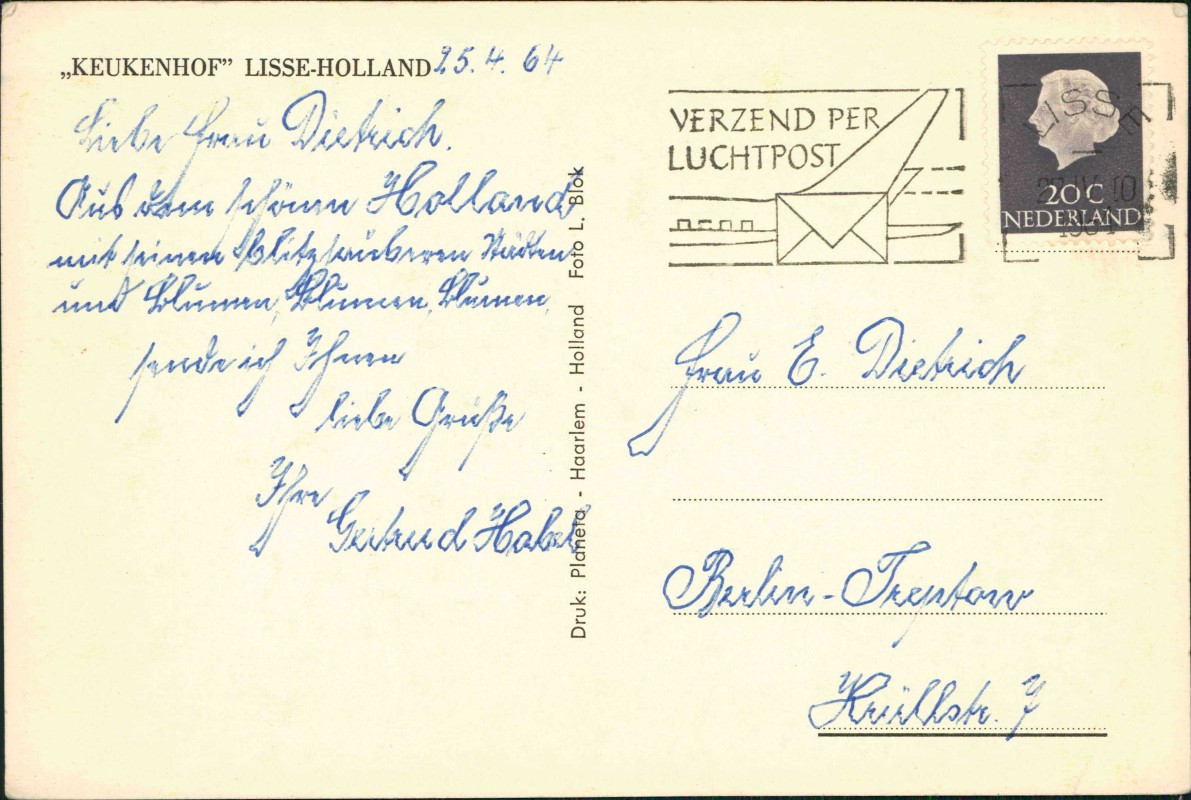 „KEUKENHOF” LISSE-HOLLAND 25.4.64
Liebe Frau Dietrich.
Aus dem schönen Holland
mit seinen blitzsauberen Städten
und Blumen, Blumen, Blumen,
sende ich Ihnen
liebe Grüße
Ihre
Gertrud Habel
Druk: Planeta - Haarlem - Holland Foto L. Blok
VERZEND PER
LUCHTPOST
LISSE
1964
20 C
NEDERLAND
Frau E. Dietrich
Berlin-Treptow
Krüllstr. 7